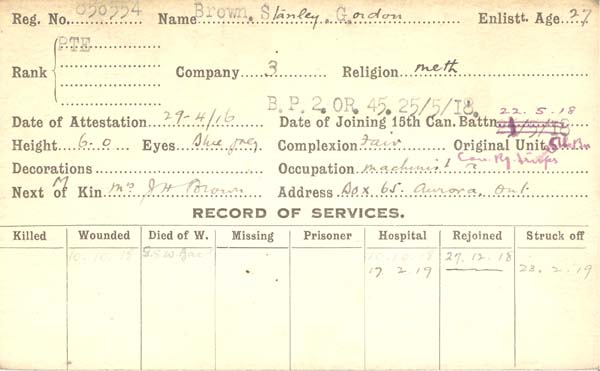 Reg. No. Name Brown, Stanley, Gordon Enlistt. Age 27
PTE
Rank Company 3 Religion meth
B.P.2.OR.45.25/5/18.
Date of Attestation 29-4/16 Date of Joining 15th Can. Battn. 22.5.18
Height 6-0 Eyes Blue Complexion Fair Original Unit
Decorations Occupation machinist Can. Ry. Troops
Next of Kin Mrs J H Brown Address Box 65. Aurora, Ont.
RECORD OF SERVICES.
Killed Wounded Died of W. Missing Prisoner Hospital Rejoined Struck off
10.10.18 G.S.W. 10.10.18 27.12.18
17.2.19 23.2.19